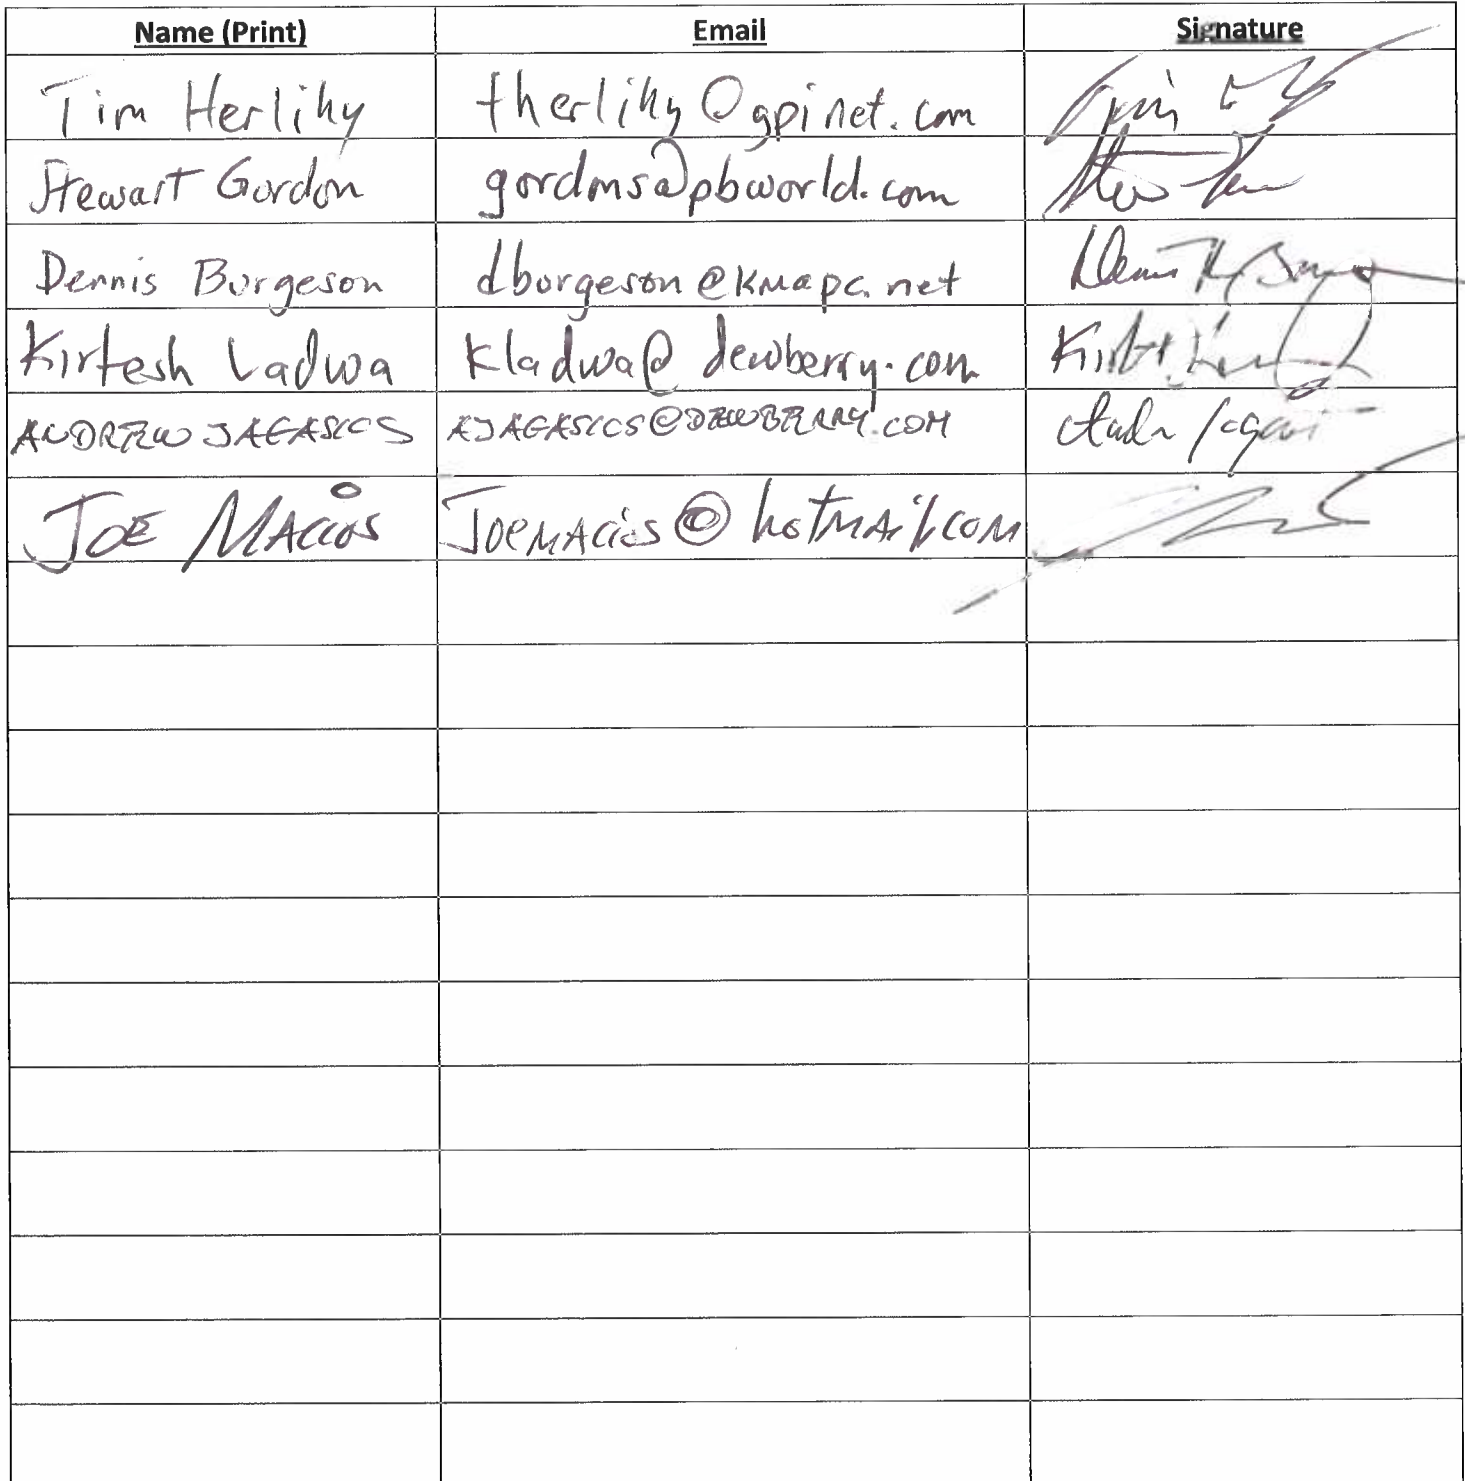 Name (Print) Email Signature
Tim Herlihy therlihy@gpinet.com
Stewart Gordon gordons@pbworld.com
Dennis Burgeson dburgeson@kmapc.net
Kirtesh Ladwa kladwa@dewberry.com
ANDREW JAGASICS AJAGASICS@DEWBERRY.COM
JOE MACIOS JOEMACiOS@hotMAil.COM